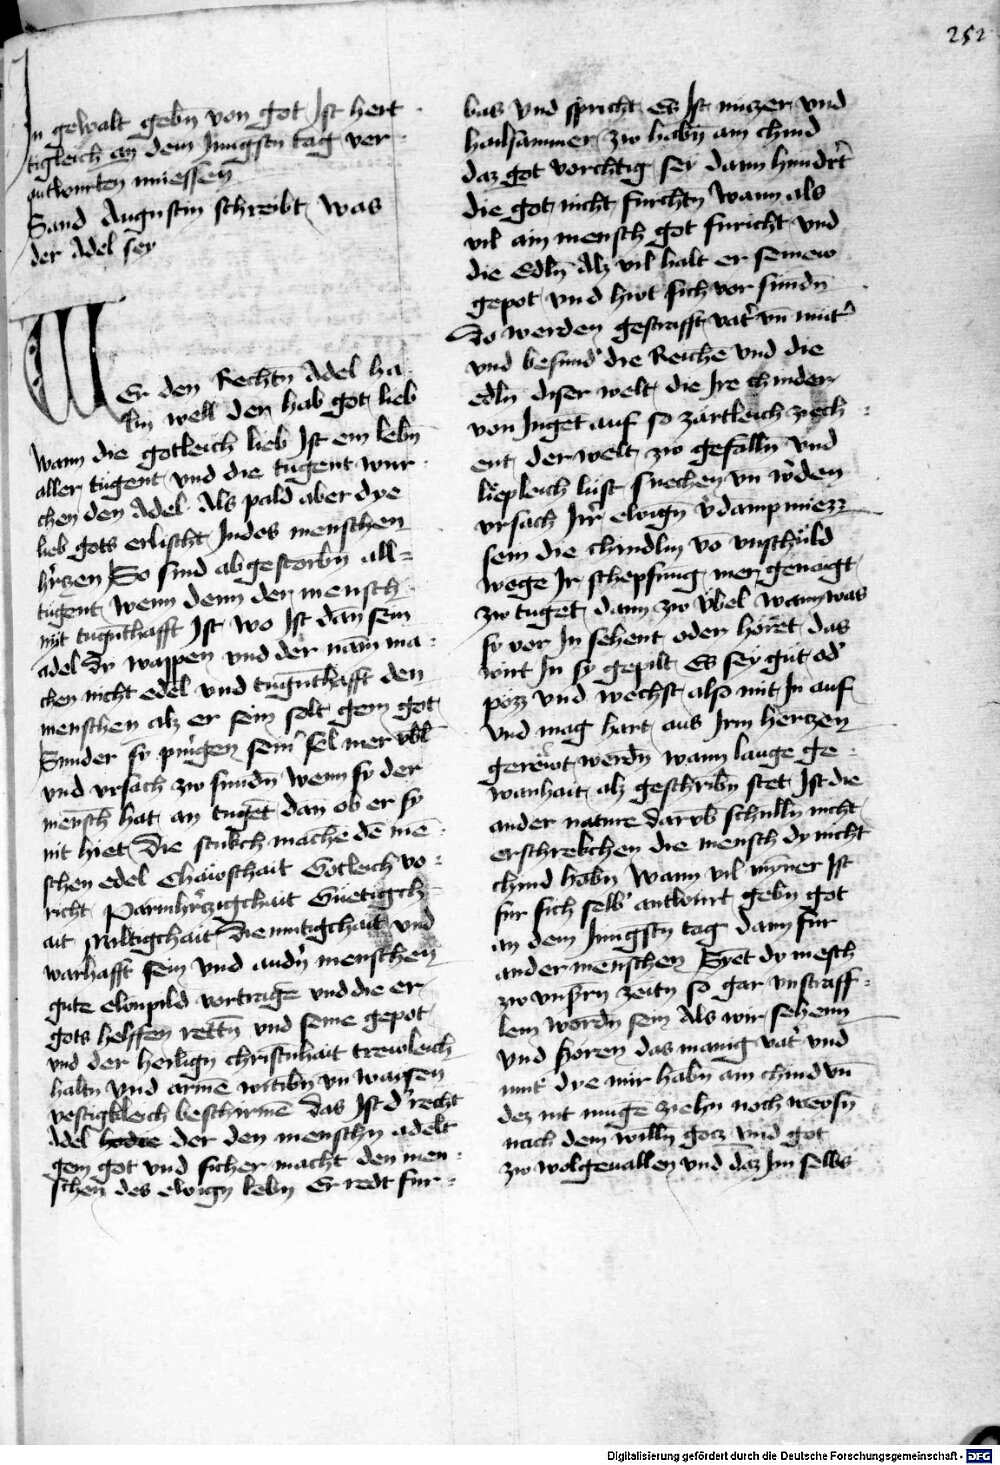 252
In gewalt gebn von got Ist hert
tigleich an dem Jungstn tag ver
antwurten muessen
Sand Augustin schreibt was
der Adel sey
Wer den Rechtn Adel ha
bn well der hab got lieb
wann die gotleich lieb Ist ein lebn
aller tugent vnd die tugent wur
chen den Adel Als pald aber dye
lieb gots erlischt Jn des menschen
hertzen So sind abgestorbn all
tugent wenn denn der mensch
nit tugnthafft Ist wo Ist dan sein
adel Dy wappen vnd der nam ma
chen nicht edel vnd tugnthafft den
menschen alz er sein solt gem got
Sunder sy pringen seinr sel mer vbl
vnd vrsach zw sundn wenn sy der
mensch hat an tuget dan ob er sy
nit hiet Die stukch mache de me
schen edel Chawschait Gotleich vo
richt Parmhrtzigchait Guetigch
ait Miltigchait Diemutigchait vnd
warhafft sein vnd andn menschen
gute ebnpild vortrage vnd die er
gots helffen rettn vnd seine gepot
vnd der heilign christnhait trewleich
haltn vnd arme witibn vn waisen
vestigkleich beschirme das Ist d recht
Adel der den menschn adelt
gem got vnd sicher macht den men
schen des ewign lebn Er redt fur
bas vnd spricht Es Ist nuczer vnd
hailsamer zw habn ain chind
daz got vorchtig sey dann hundrt
die got nicht furchtn wann als
vil ain mensch got furicht vnd
die Edln Alz vil halt er seinew
gepot vnd hwt sich vor sundn
Do werden gestrafft vatr vn mutr
vnd besundr die Reichen vnd die
edln diser welt die Ire chinder
von Juget auf so zartleich ziech
ent der welt zw gefalln vnd
liepleich lust suechen vn wden
vrsach Irr ewign vdampnuezz
sein die chindln vo vnschuld
wege Ir schepfung mer genaigt
zw tuget dann zw vbel wann was
sy vor In sehent oder horet das
wirt In sy gepilt Es sey gut od
pozz vnd wechst also mit In auf
vnd mag hart aus Irm hertzen
gerewt werdn wann lange ge
wanhait alz geschribn stet Ist die
ander nature darvb schulln nicht
erschrekchen die mensch dy nicht
chind habn wann vil mynner Ist
fur sich selb antwurt gebn got
an dem Jungstn tag dann fur
ander menschen Syet dy mesch
zw vnsrn zeitn so gar vnstraff
lem wordn sein Als wir sehenn
vnd horen das manig vatr vnd
mutr dye nur habn ain chind vn
dez nit muge ziehn noch weysn
nach dem willn gocz vnd got
zw wolgeuallen vnd daz Im selbs
Digitalisierung gefördert durch die Deutsche Forschungsgemeinschaft - DFG